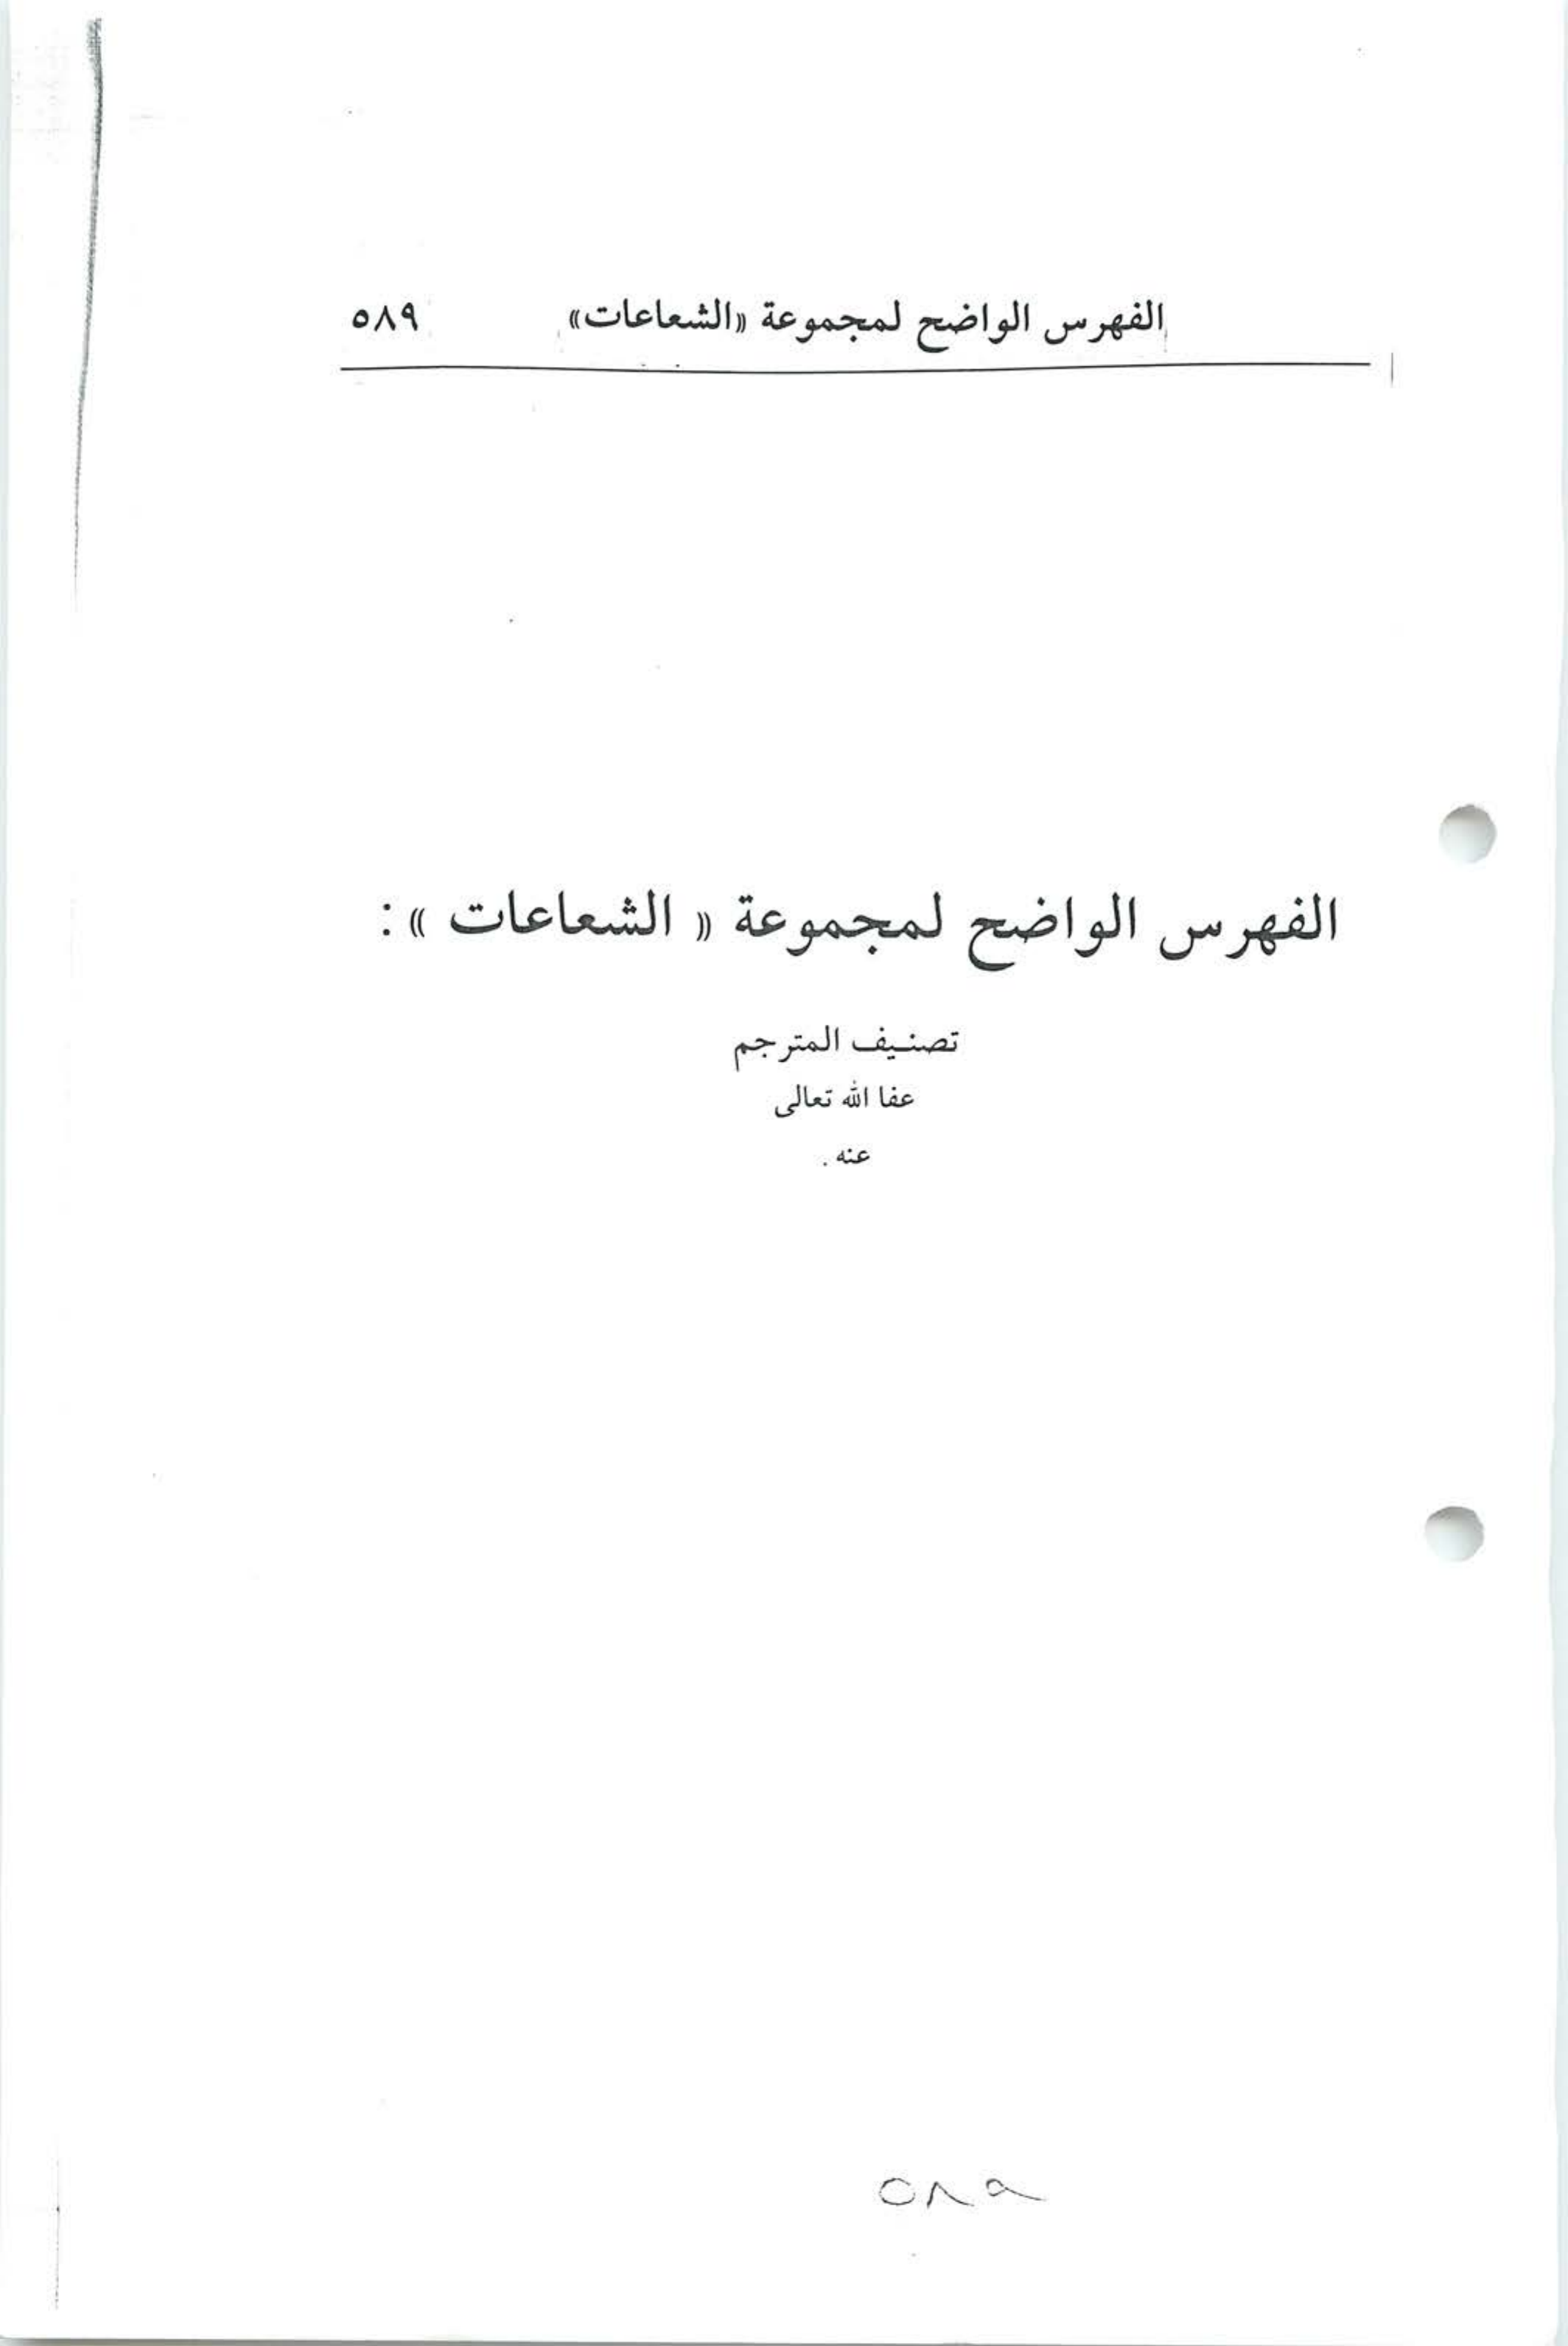 الفهرس الواضح لمجموعة «الشعاعات» ٥٨٩
الفهرس الواضح لمجموعة « الشعاعات » :
تصنيف المترجم
عفا الله تعالى
عنه .
٥٨٩